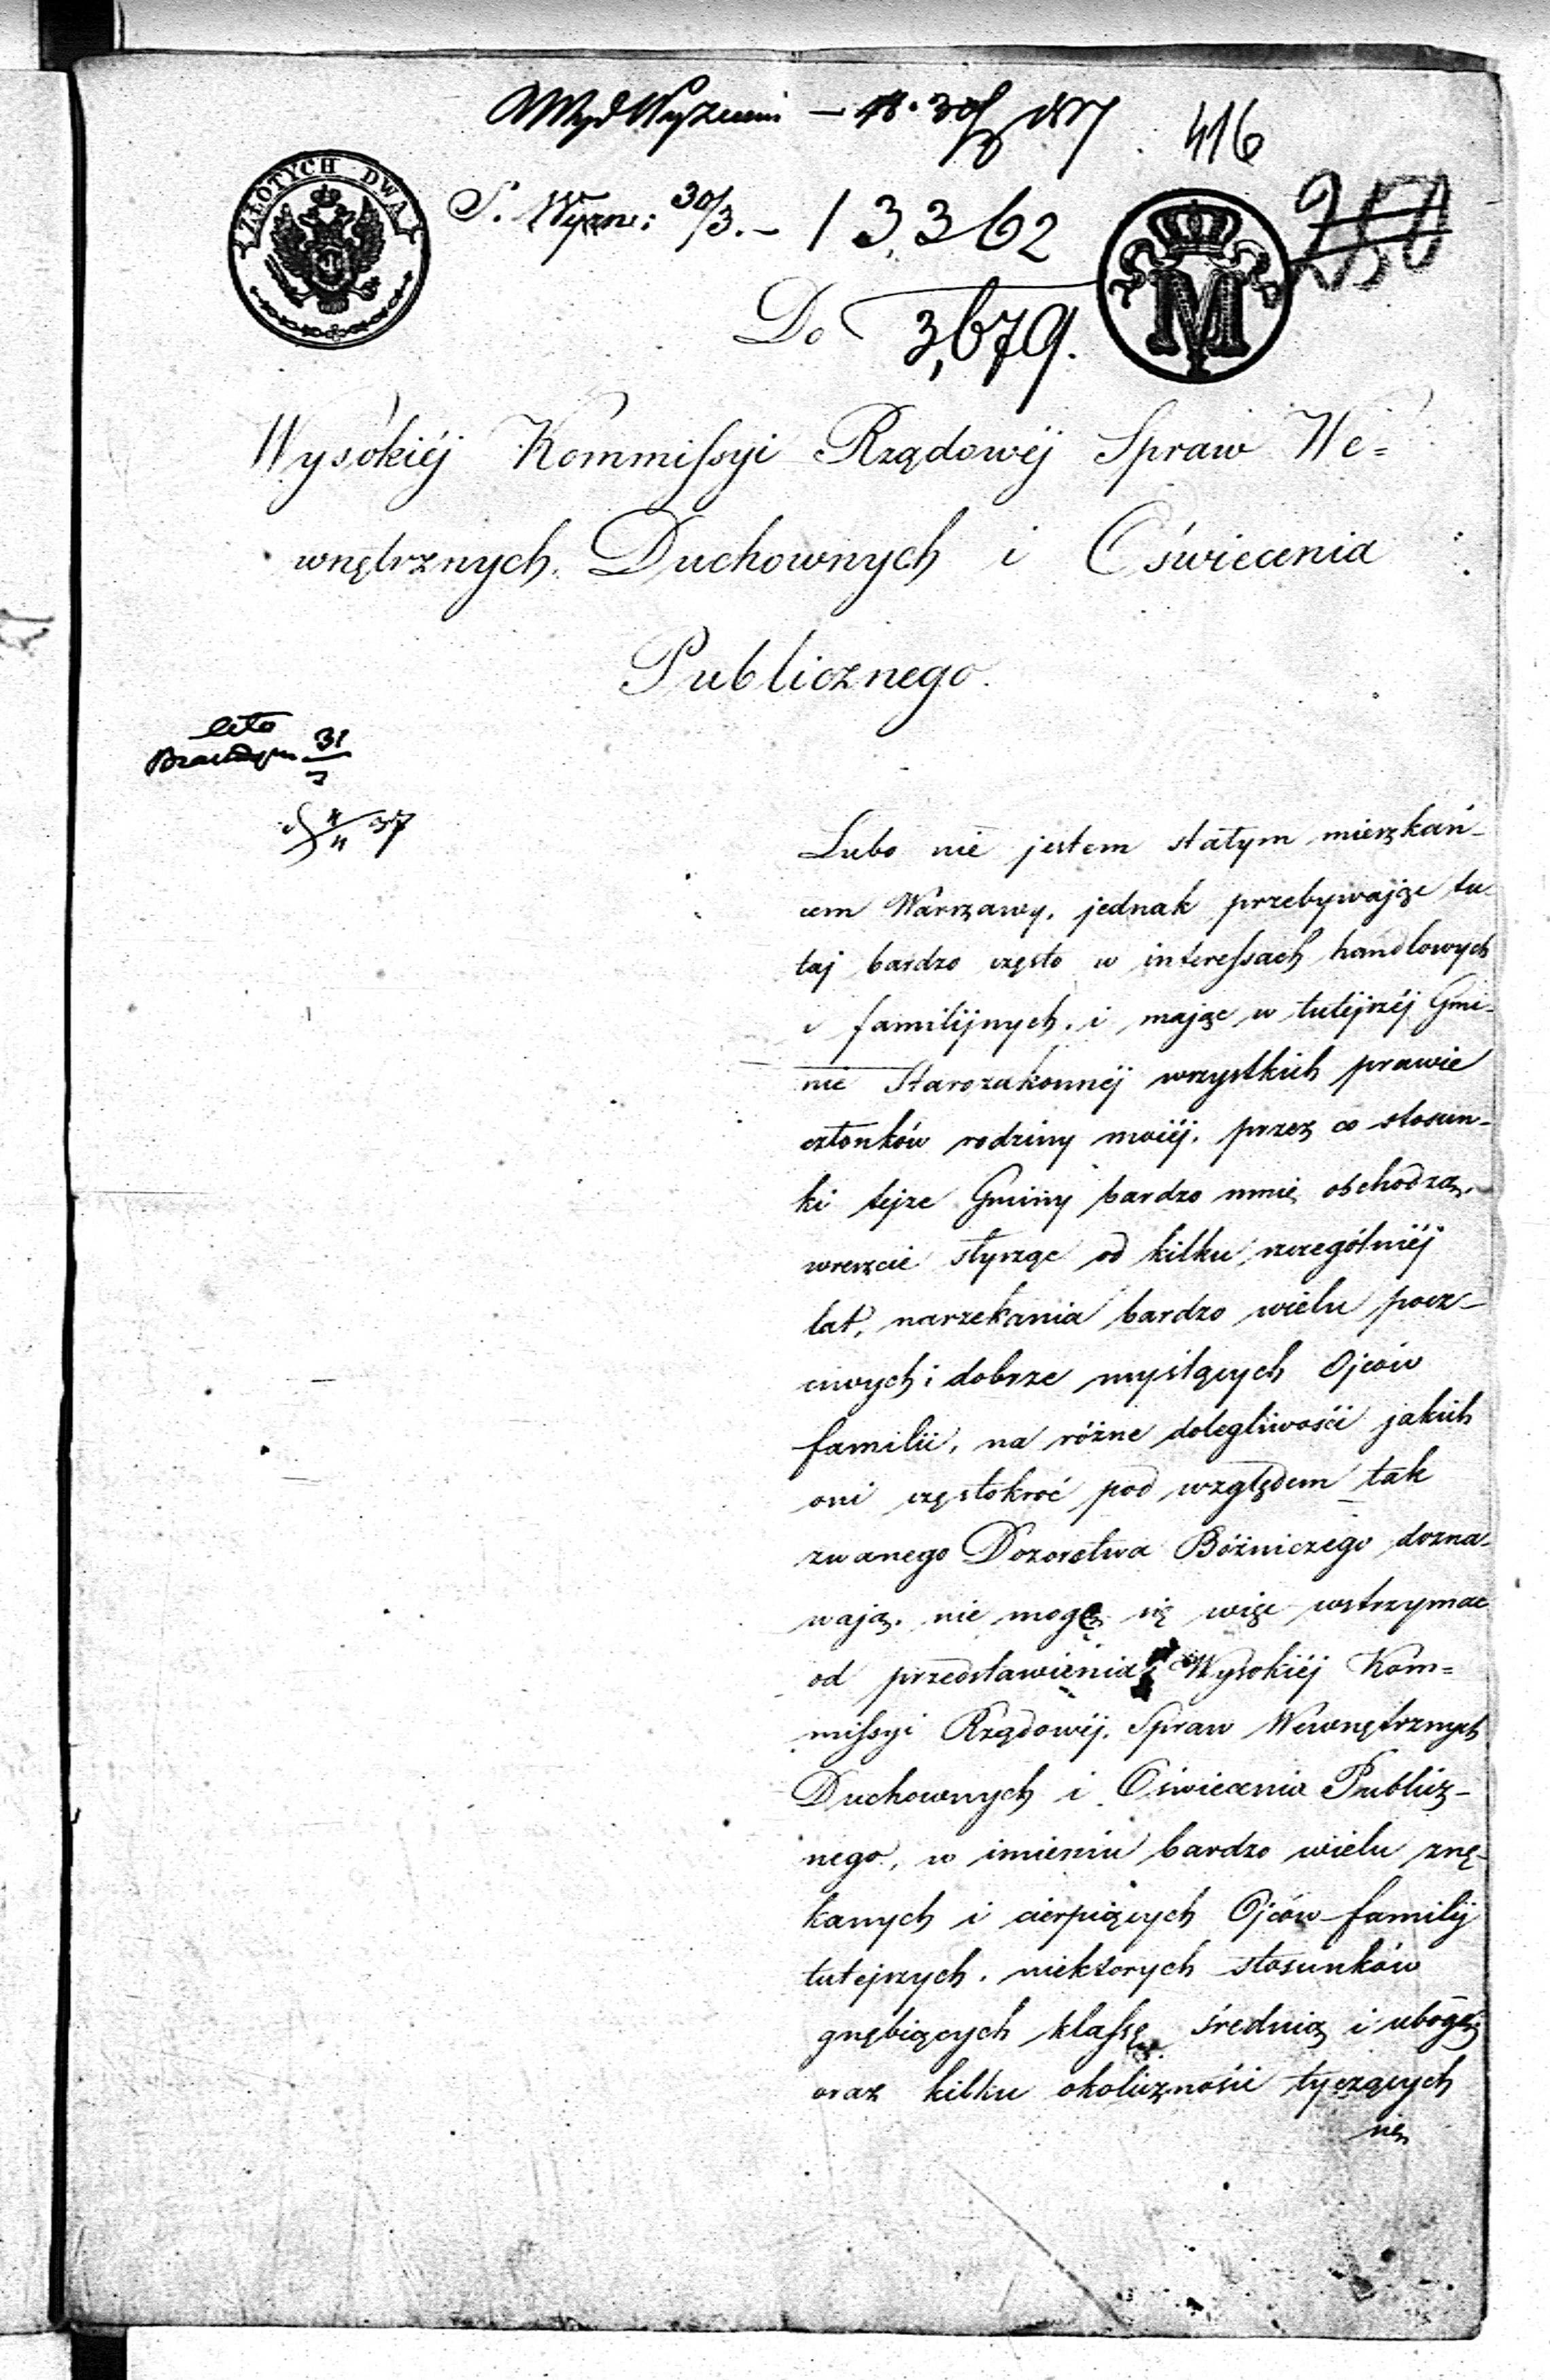 416
ZŁOTYCH DWA
S. Wyzn: 30/3. – 13,362
M
250
Do
3,679.
Wysokiéj Kommissyi Rządowéj Spraw We=
wnętrznych, Duchownych i Oświecenia
Publicznego.
31/3
4/4 37
Lubo nie jestem stałym mieszkań-
cem Warszawy, jednak przebywając tu-
taj bardzo często w interessach handlowych
i familijnych, i mając w tutéjszéj Gmi-
nie Starozakonnéj wszystkich prawie
członków rodziny moiéj, przez co stosun-
ki tejże Gminy bardzo mnie obchodzą,
wreszcie słysząc od kilku szczególniéj
lat, narzekania bardzo wielu pocz-
ciwych i dobrze myslących Ojców
familii, na różne dolegliwości jakich
oni częstokroć pod względem tak
zwanego Dozorctwa Bóżniczego dozna-
wają, nie mogę się więc wstrzymac
od przedstawienia Wysokiéj Kom=
missyi Rządowéj, Spraw Wewnętrznych
Duchownych i Oświecenia Publicz-
nego, w imieniu bardzo wielu znę-
kanych i cierpiących Ojców familij
tutejszych, niektorych stosunków
gnębiących klassę średnią i ubogą
oraz kilku okoliczności tyczących
się